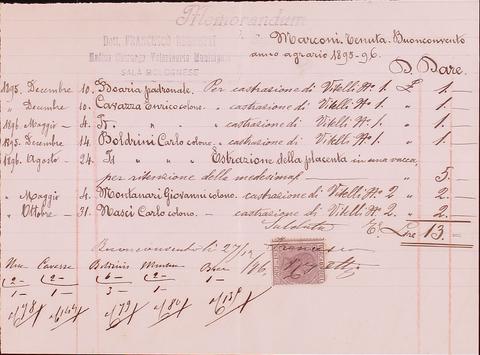 Memorandum
Dott. FRANCESCO
Medico Chirurgo Veterinario Municipale
SALA BOLOGNESE
Marconi. Tenuta. Buonconvento
anno agrario 1895-96.
D Dare.
1895. Decembre 10. Boaria padronale. Per castrazione di Vitelli No 1. £ 1.—
„ Decembre 10. Cavazza Enrico colono. „ castrazione di Vitelli. No 1. „ 1.—
1896. Maggio — 4. „ „ castrazione di Vitelli No 1. „ 1.—
1895. Decembre 14. Boldrini Carlo colono. „ castrazione di Vitelli No 1. „ 1.—
1896. Agosto — 24. „ „ „ Estrazione della placenta in una vacca,
per ritenzione delle medesima — „ 5.—
„ Maggio — 4. Montanari Giovanni colono. castrazione di Vitelli No 2. „ 2.—
„ Ottobre — 31. Masci Carlo colono. — castrazione di Vitelli No 2. „ 2.—
Lire 13.—
Buonconvento li 27/12
/96
Boldrini
2— 2— 6— 2—
1— 1— 3— 1— 1—